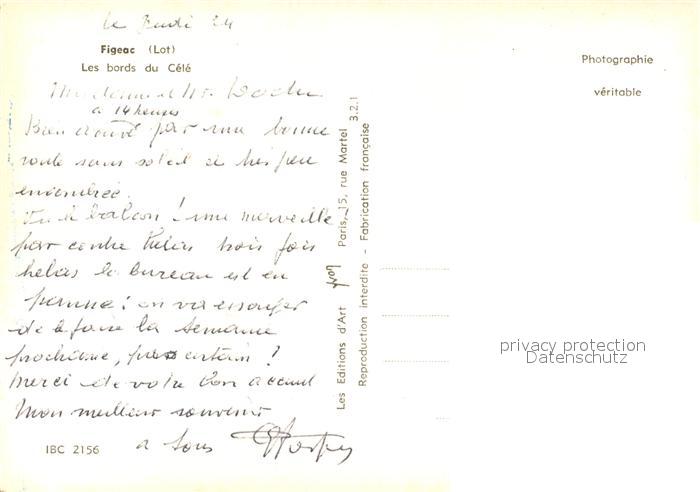 le Jeudi 24
Figeac (Lot)
Les bords du Célé
Madame et Mr
a 14 heures
Bien arrivé par une bonne
route sans soleil et très peu
encombrée.
Vu le balcon! une merveille
par contre hélas trois fois
helas le bureau est en
panne: on va essayer
de le faire la semaine
prochaine, pas certain?
Merci de votre bon accueil
Mon meilleur souvenir
a tous
IBC 2156
Les Editions d'Art yvon Paris, 15, rue Martel 3.2.1
Reproduction interdite - Fabrication française
Photographie
véritable
privacy protection
Datenschutz